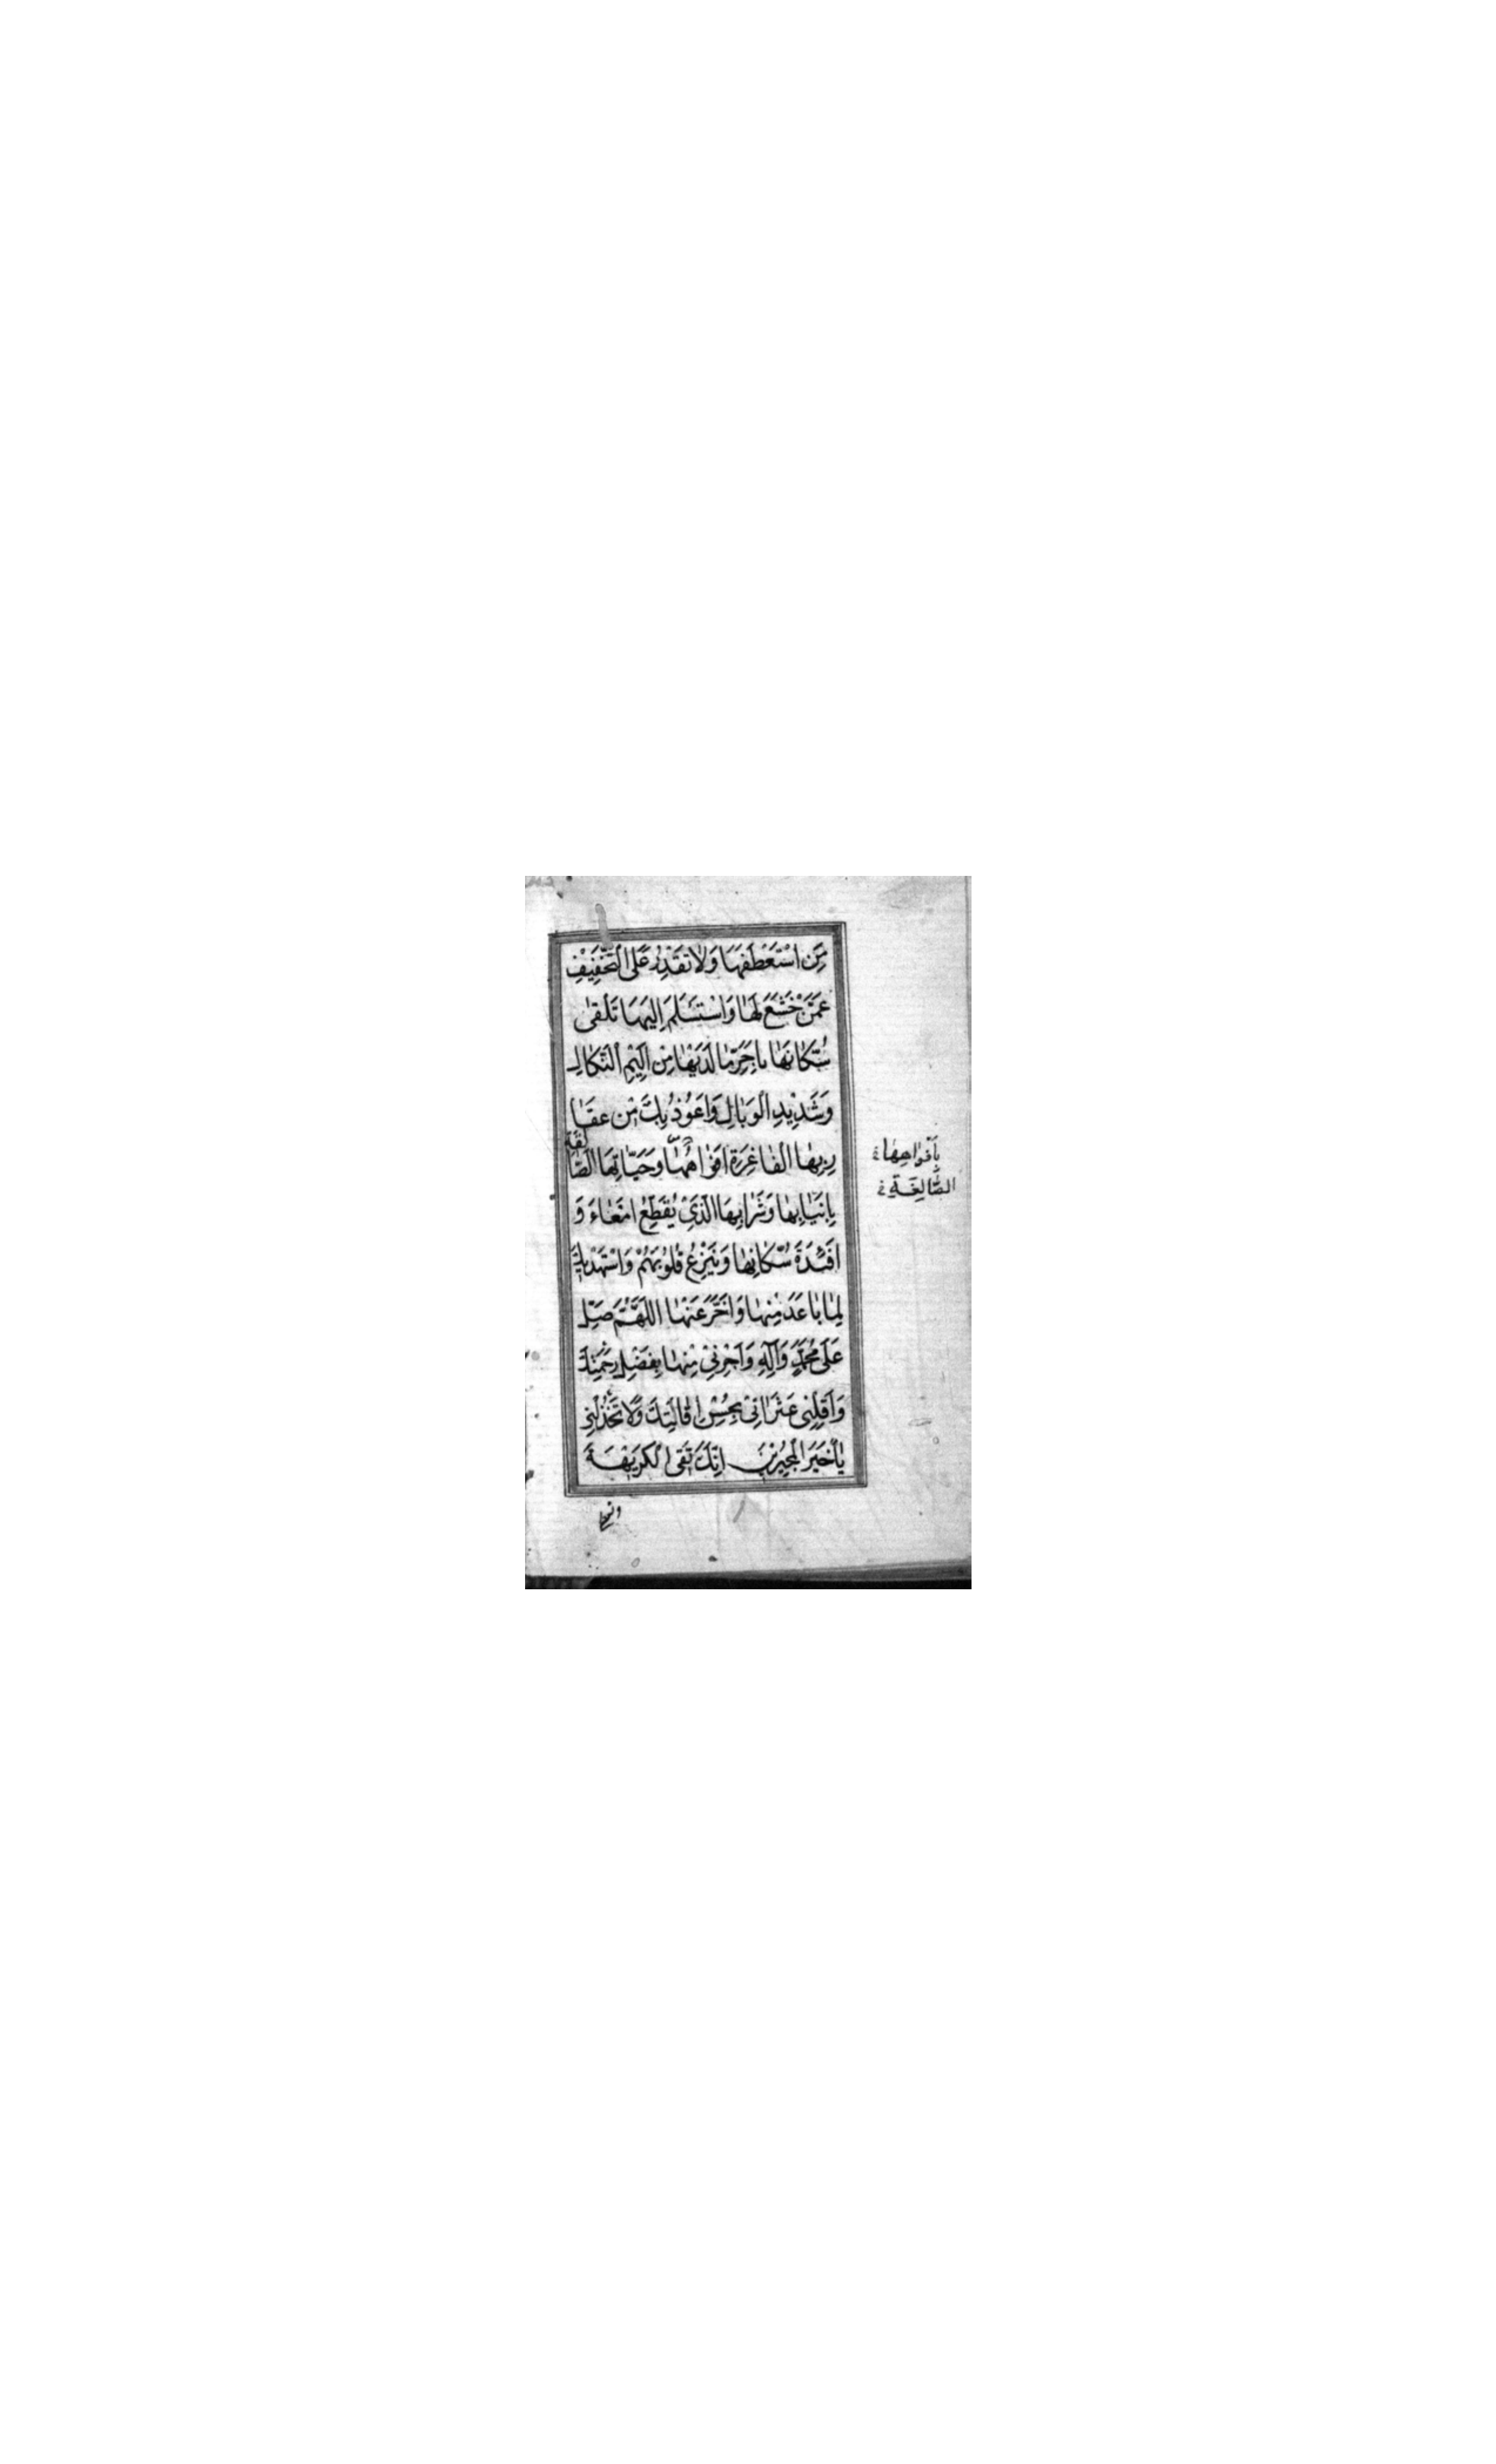 مَنِ اسْتَعْطَفَهَا وَلَا تَقْدِرُ عَلَى التَّخْفِيفِ
عَمَّنْ خَشَعَ لَهَا وَاسْتَسْلَمَ اِلَيْهَا تَلْقٰى
سُكَّانَهَا بِاَحَرِّ مَا لَدَيْهَا مِنْ اَلِيْمِ النَّكَالِ
وَشَدِيْدِ الْوَبَالِ وَاَعُوْذُ بِكَ مِنْ عَقَا
رِبِهَا الْفَاغِرَةِ اَفْوَاهُهَا وَحَيَّاتِهَا الصَّالِقَةِ
بِاَنْيَابِهَا وَشَرَابِهَا الَّذِىْ يُقَطِّعُ اَمْعَاءَ وَ
اَفْئِدَةَ سُكَّانِهَا وَيَنْزِعُ قُلُوْبَهُمْ وَاَسْتَهْدِيْكَ
لِمَا بَاعَدَ مِنْهَا وَاَخَّرَ عَنْهَا اللّٰهُمَّ صَلِّ
عَلٰى مُحَمَّدٍ وَاٰلِهِ وَاَجِرْنِىْ مِنْهَا بِفَضْلِ رَحْمَتِكَ
وَاَقِلْنِى عَثَرَاتِىْ بِحُسْنِ اِقَالَتِكَ وَلَا تَخْذُلْنِىْ
يَا خَيْرَ الْمُجِيْرِيْنَ اِنَّكَ تَقِى الْكَرِيْهَةَ
بِاَفْوَاهِهَا
الصَّالِغَةِ